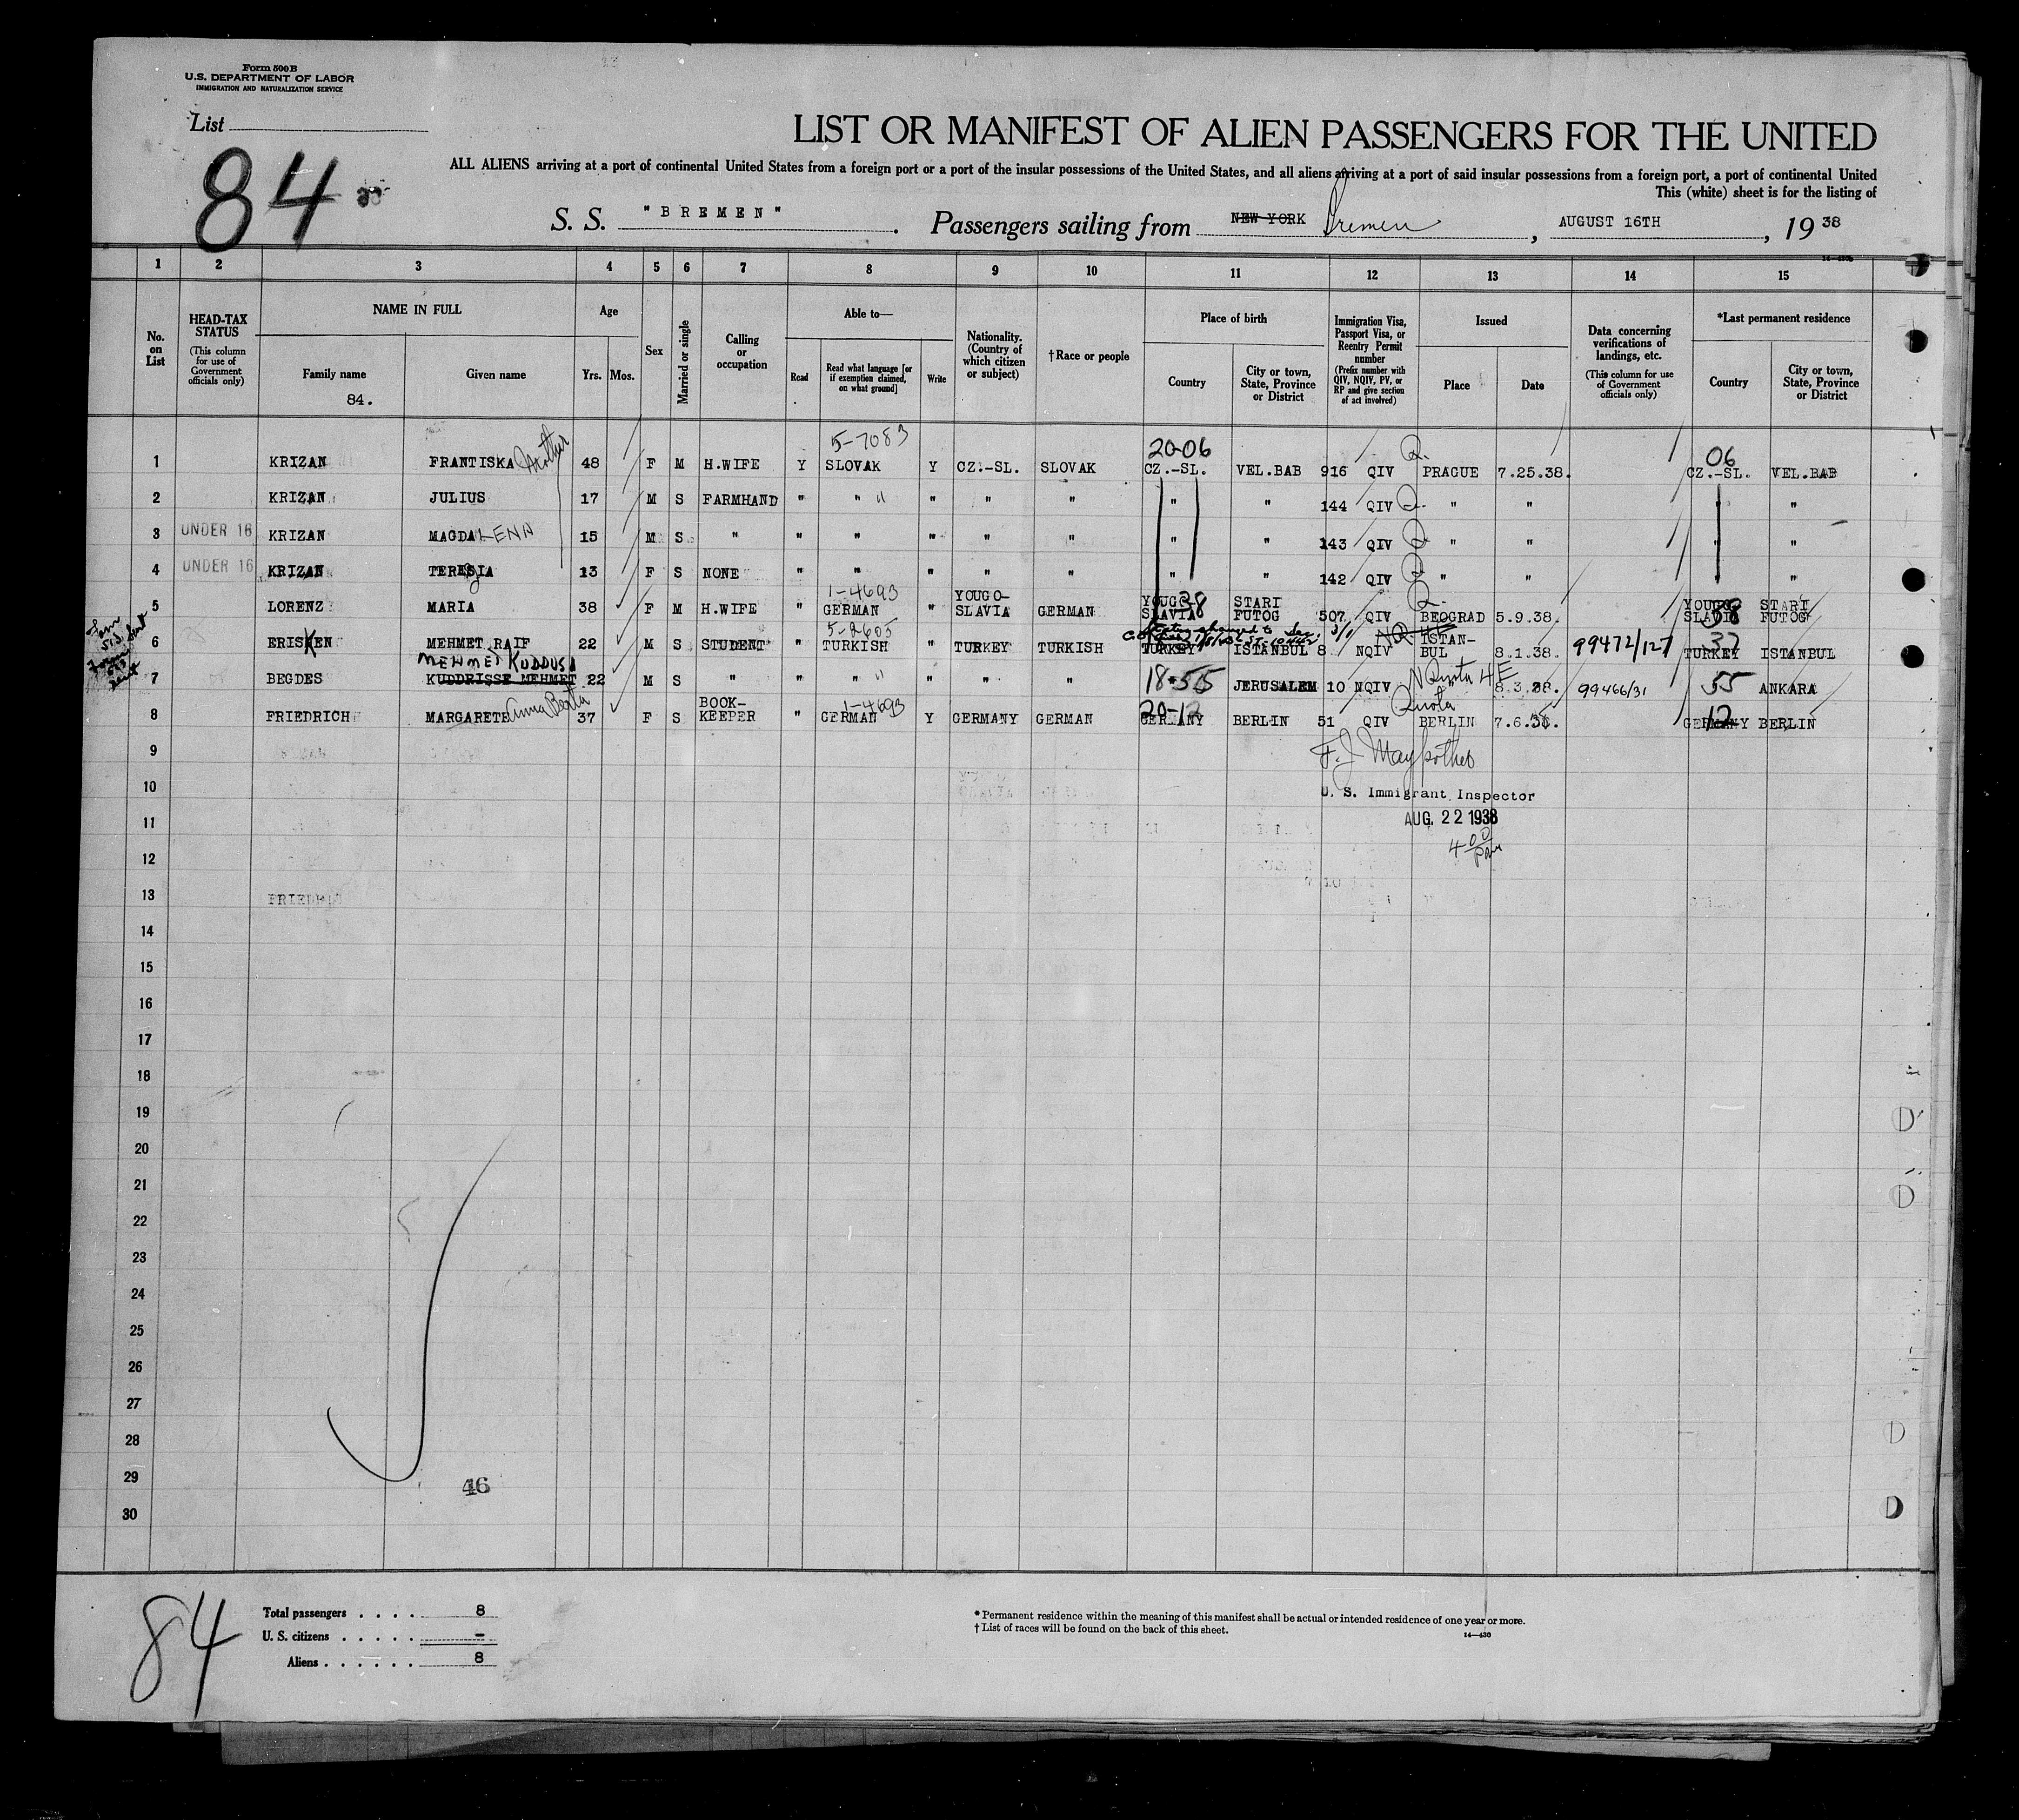 Form 500 B
U.S. DEPARTMENT OF LABOR
IMMIGRATION AND NATURALIZATION SERVICE
List
84
LIST OR MANIFEST OF ALIEN PASSENGERS FOR THE UNITED
ALL ALIENS arriving at a port of continental United States from a foreign port or a port of the insular possessions of the United States, and all aliens arriving at a port of said insular possessions from a foreign port, a port of continental United
This (white) sheet is for the listing of
S. S. "BREMEN". Passengers sailing from NEW YORK Bremen, AUGUST 16TH, 19 38
14—430
1 2 3 4 5 6 7 8 9 10 11 12 13 14 15
No. on List
HEAD-TAX STATUS (This column for use of Government officials only)
NAME IN FULL
Family name
84.
Given name
Age
Yrs. Mos.
Sex
Married or single
Calling or occupation
Able to—
Read
Read what language [or if exemption claimed, on what ground]
Write
Nationality. (Country of which citizen or subject)
†Race or people
Place of birth
Country
City or town, State, Province or District
Immigration Visa, Passport Visa, or Reentry Permit number (Prefix number with QIV, NQIV, PV, or RP and give section of act involved)
Issued
Place
Date
Data concerning verifications of landings, etc. (This column for use of Government officials only)
*Last permanent residence
Country
City or town, State, Province or District
5-7083 20-06 Q. 06
1 KRIZAN FRANTISKA Mother 48 F M H.WIFE Y SLOVAK Y CZ.-SL. SLOVAK CZ.-SL. VEL.BAB 916 QIV PRAGUE 7.25.38. CZ.-SL. VEL.BAB
2 KRIZAN JULIUS 17 M S FARMHAND " " " " " " " " 144 QIV Q. " " " "
3 UNDER 16 KRIZAN MAGDALENA 15 M S " " " " " " " " 143 QIV Q " " " "
4 UNDER 16 KRIZAN TERESIA 13 F S NONE " " " " " " " 142 QIV Q " " " "
1-4693 38 Q. 38
5 LORENZ MARIA 38 F M H.WIFE " GERMAN " YOUGO-SLAVIA GERMAN YOUGO-SLAVIA STARI FUTOG 507 QIV BEOGRAD 5.9.38. YOUGO-SLAVIA STARI FUTOG
5-2605 37
6 ERISKEN MEHMET RAIF 22 M S STUDENT " TURKISH " TURKEY TURKISH TURKEY ISTANBUL 8 NQIV ISTAN-BUL 8.1.38. 99472/127 TURKEY ISTANBUL
MEHMED KUDDUSI
7 BEGDES KUDDRISSE MEHMET 22 M S " " " " " " " 18-55 JERUSALEM 10 NQIV NQuota 4E 8.3.38. 99466/31 55 ANKARA
1-4693 20-12 Quota 12
8 FRIEDRICH MARGARETE Anna Berta 37 F S BOOK-KEEPER " GERMAN Y GERMANY GERMAN GERMANY BERLIN 51 QIV BERLIN 7.6.38. GERMANY BERLIN
9
10
U. S. Immigrant Inspector
11
AUG. 22 1938
4 00 pm
12
13 FRIEDRI
14
15
16
17
18
19
20
21
22
23
24
25
26
27
28
29
46
30
84
Total passengers . . . . 8
U. S. citizens . . . . . –
Aliens . . . . . . 8
* Permanent residence within the meaning of this manifest shall be actual or intended residence of one year or more.
† List of races will be found on the back of this sheet.
14—430